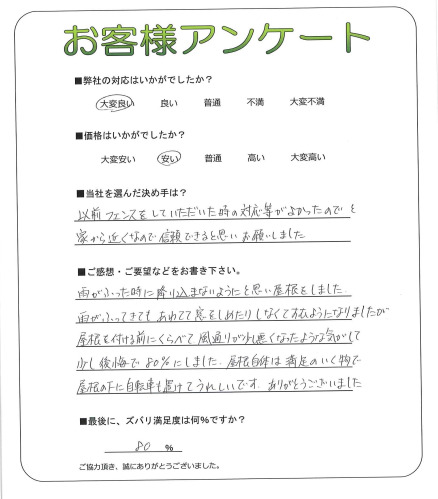 お客様アンケート
■弊社の対応はいかがでしたか?
大変良い 良い 普通 不満 大変不満
■価格はいかがでしたか?
大変安い 安い 普通 高い 大変高い
■当社を選んだ決め手は?
以前フェンスをしていただいた時の対応等がよかったのでと
家から近くなので信頼できると思いお願いしました
■ご感想・ご要望などをお書き下さい。
雨がふった時に降り込まないようにと思い屋根をしました.
雨がふってきてもあわてて窓をしめたりしなくて
なりましたが
屋根を付ける前にくらべて風通りが少し悪くなったような気がして
少し後悔で80%にしました.屋根自体は満足のいく物で
屋根の下に自転車も置けてうれしいです.ありがとうございました
■最後に、ズバリ満足度は何%ですか?
80 %
ご協力頂き、誠にありがとうございました。